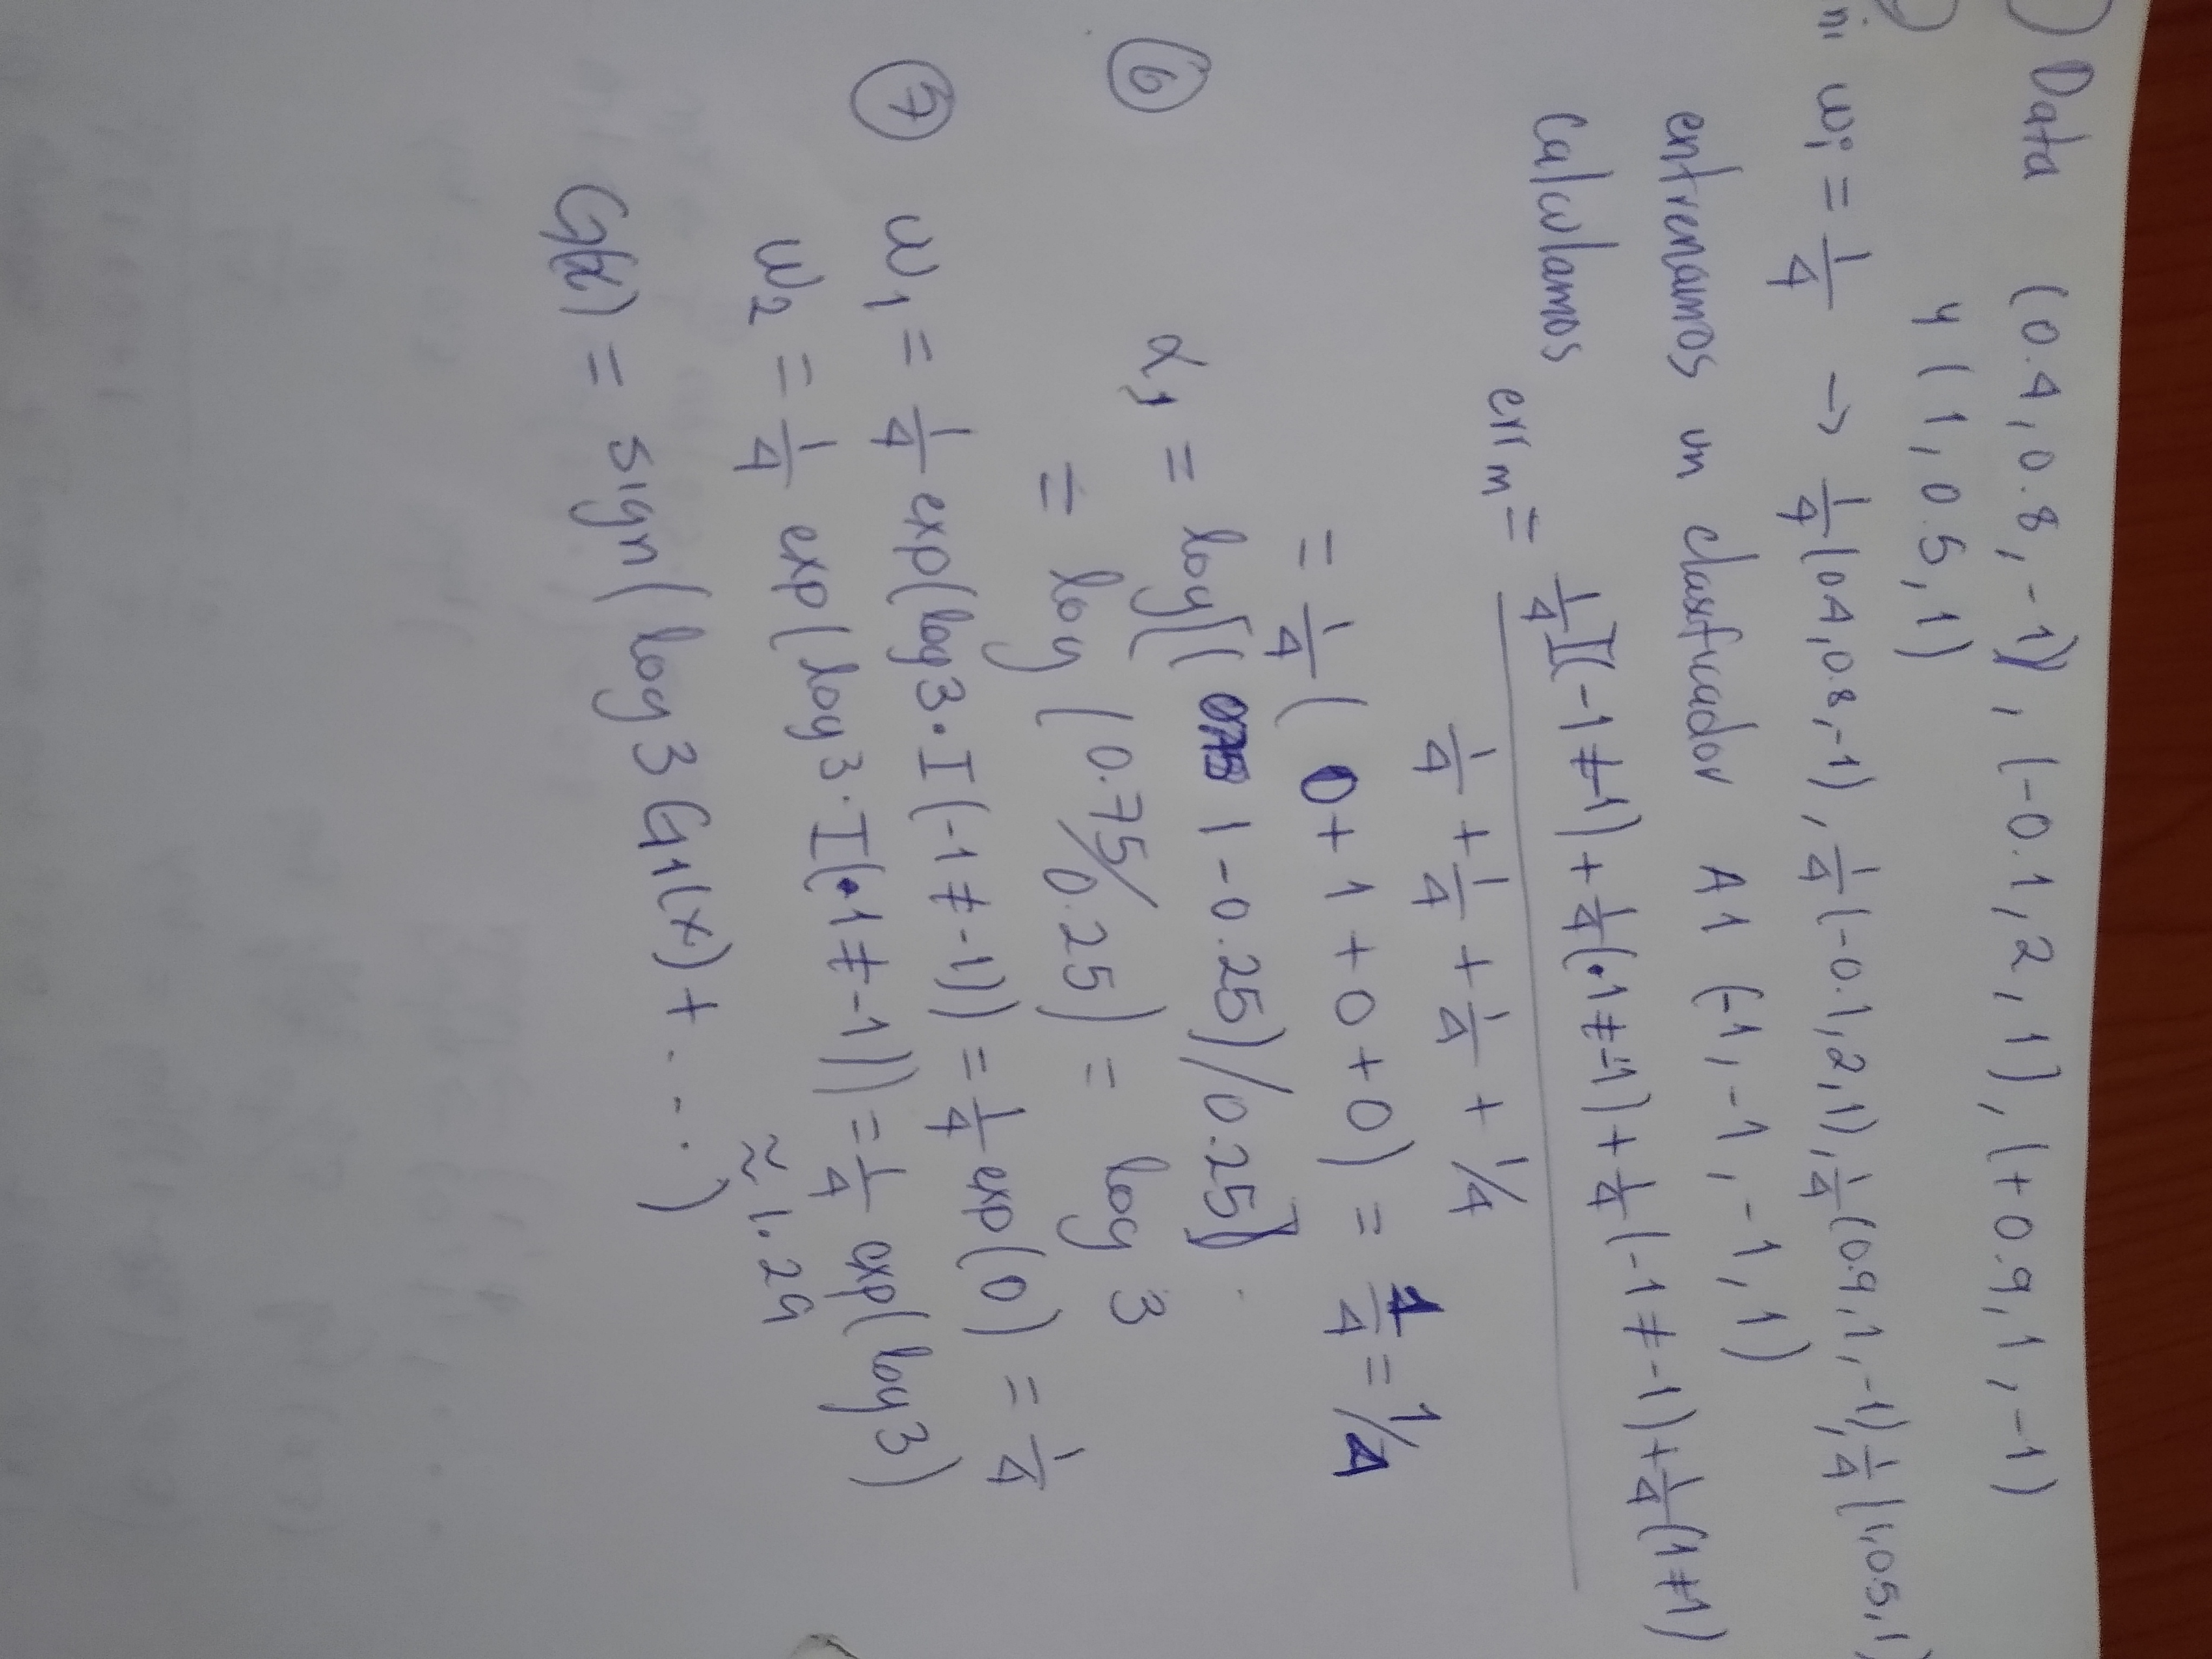 ) Data (0.4, 0.8, -1), (-0.1, 2, 1), (+0.9, 1, -1)
y (1, 0.5, 1)
ni wi = 1/4 → 1/4 (0.4, 0.8, -1), 1/4 (-0.1, 2, 1), 1/4 (0.9, 1, -1), 1/4 (1, 0.5, 1)
entrenamos un clasificador A1 (-1, -1, -1, 1)
Calculamos
err m = 1/4 I(-1 ≠ -1) + 1/4 (1 ≠ -1) + 1/4 (-1 ≠ -1) + 1/4 (1 ≠ 1)
1/4 + 1/4 + 1/4 + 1/4
= 1/4 (0 + 1 + 0 + 0) = 1/4 = 1/4
⑥ α1 = log[(1 - 0.25)/0.25]
= log (0.75/0.25) = log 3
⑦ w1 = 1/4 exp(log 3 · I(-1 ≠ -1)) = 1/4 exp(0) = 1/4
w2 = 1/4 exp(log 3 · I(1 ≠ -1))) = 1/4 exp(log 3)
≈ 1.29
G(x) = sign(log 3 G1(x) + ...)